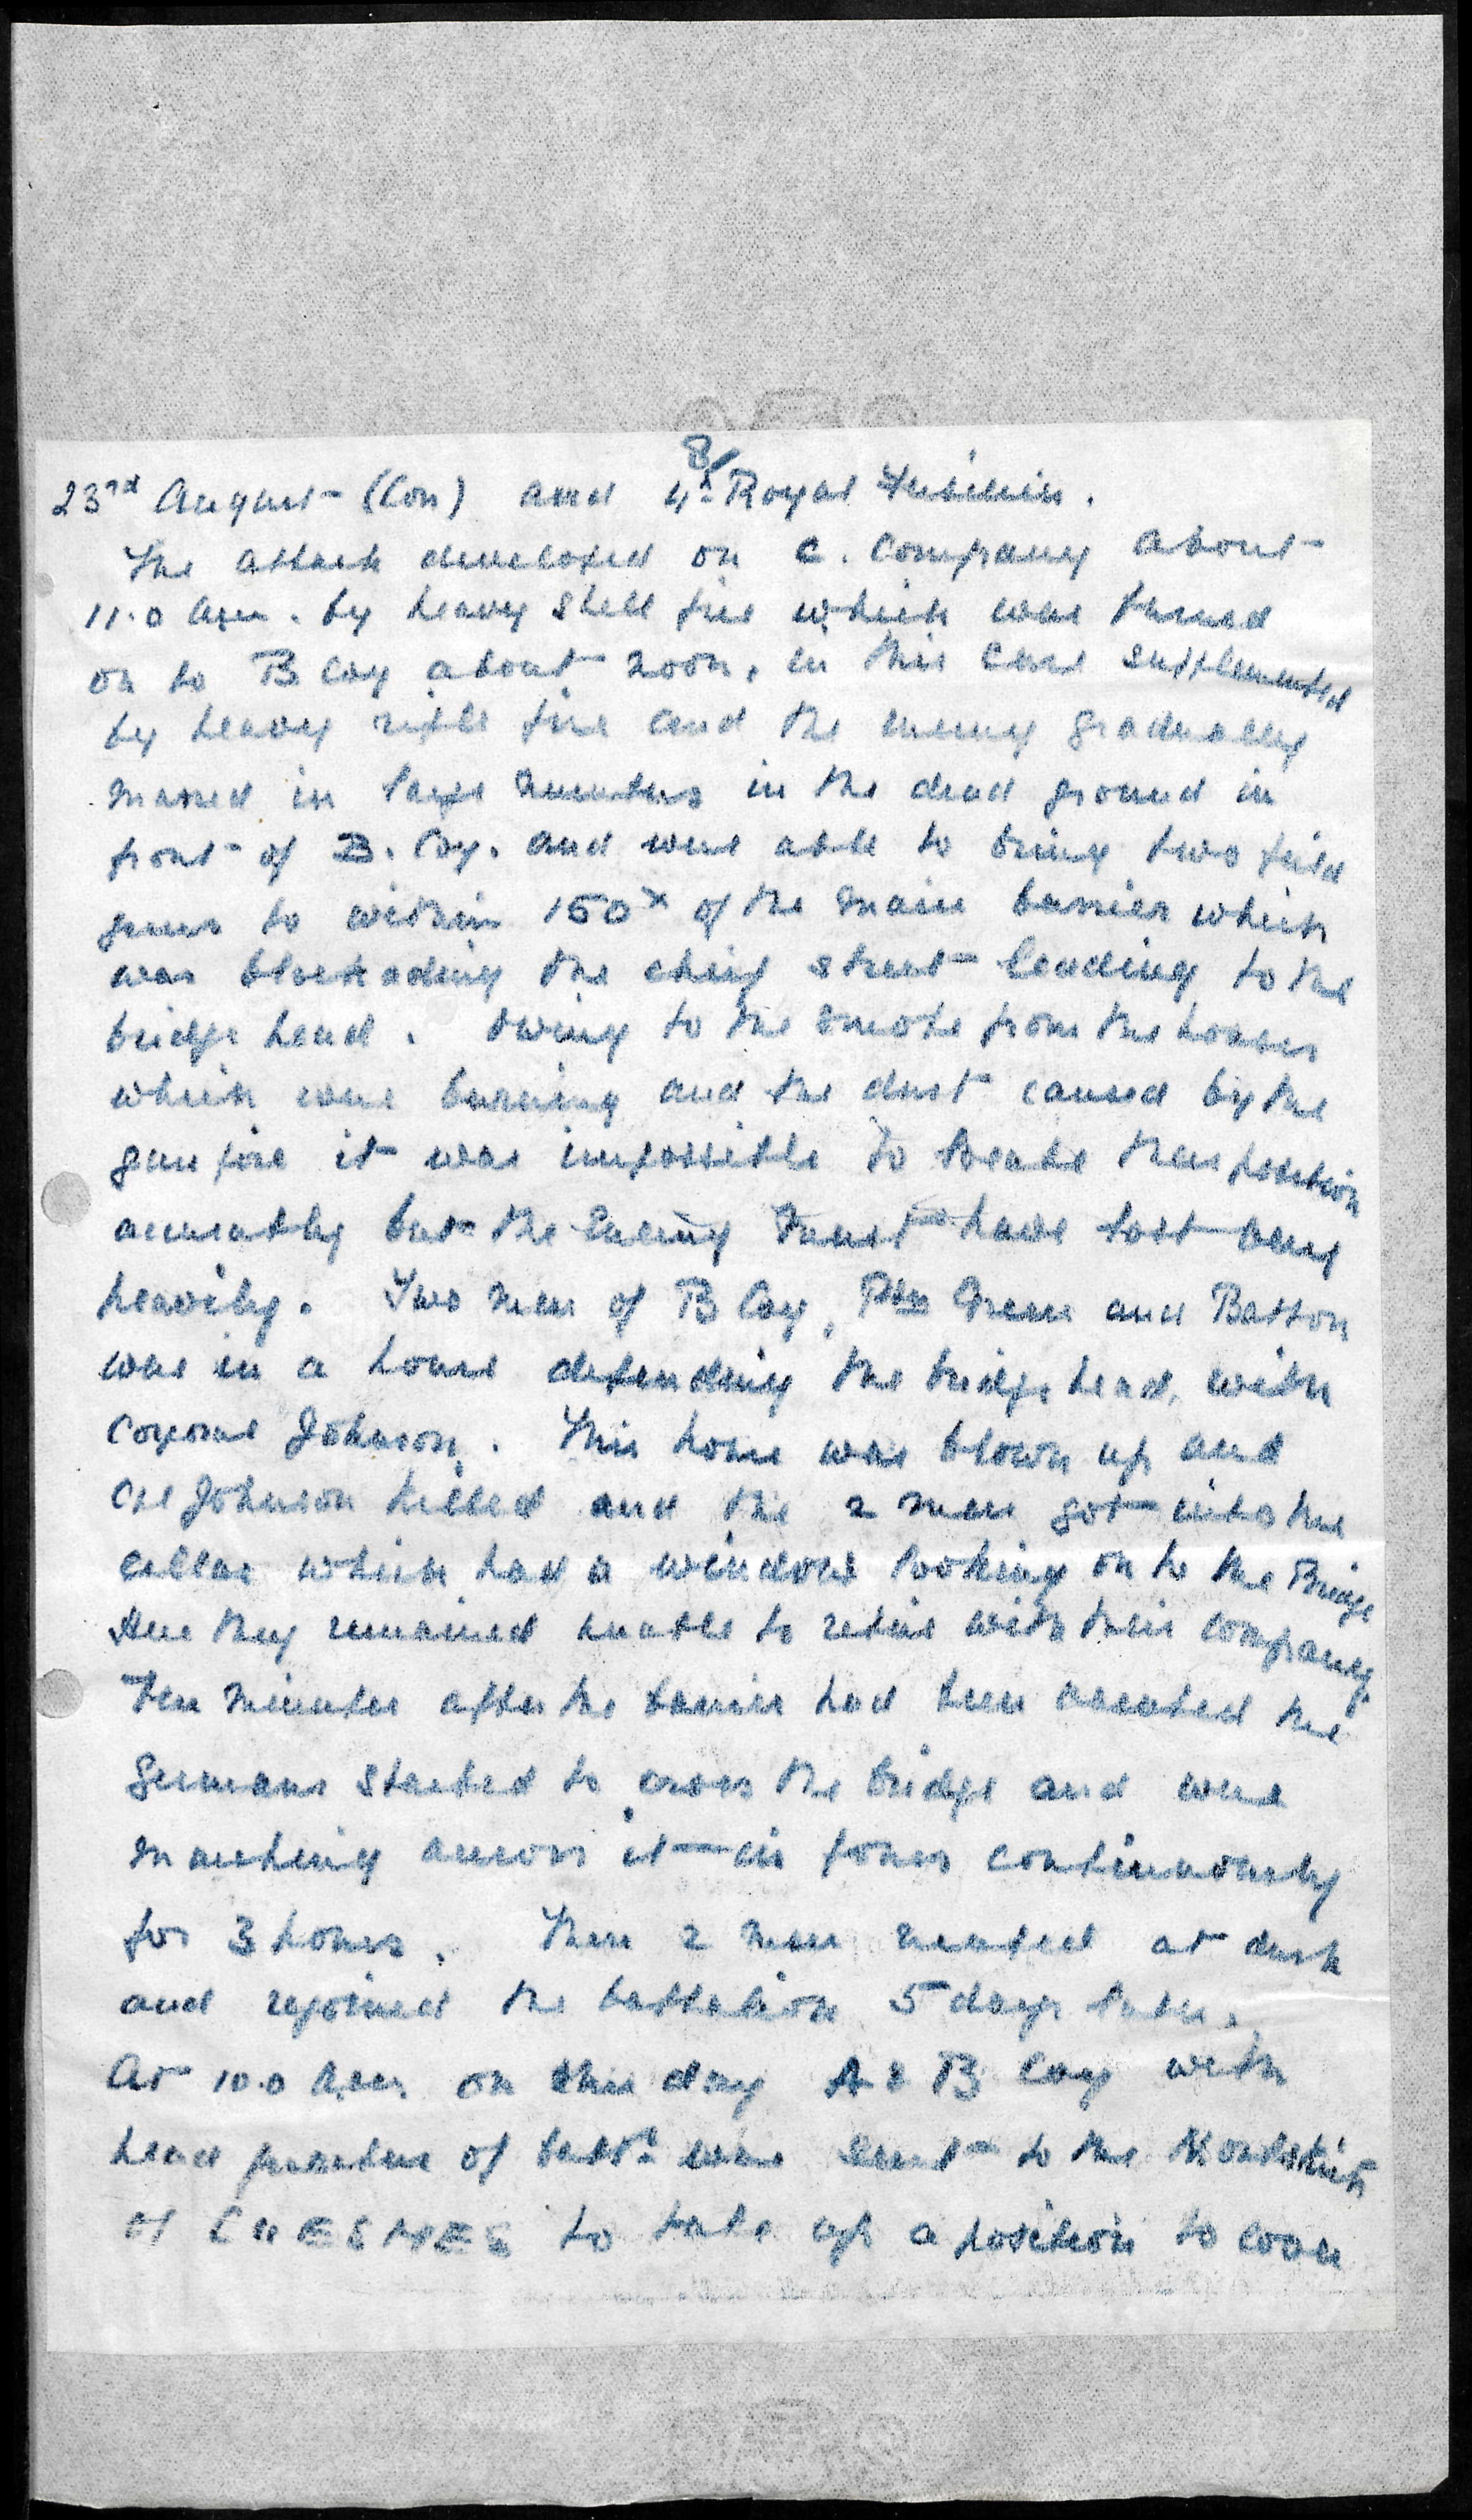 8/
23rd August (Con) and 4th Royal Fusiliers.
The attack developed on C. Company about
11.0 a.m. by heavy shell fire which was turned
on to B Coy about noon, in this case supplemented
by heavy rifle fire and the enemy gradually
massed in large numbers in the dead ground in
front of B. Coy. and were able to bring two field
guns to within 150x of the main barrier which
was blockading the chief street leading to the
bridge head. Owing to the smoke from the houses
which were burning and the dust caused by the
gun fire it was impossible to locate their position
accurately but the Enemy must have lost very
heavily. Two men of B Coy, Ptes Green and Batson
was in a house defending the bridge head, with
Corporal Johnson. This house was blown up and
Cpl Johnson killed and the 2 men got into the
cellar which had a window looking on to the Bridge
Here they remained unable to retire with their company.
Ten minutes after the barrier had been vacated the
Germans started to cross the bridge and were
marching across it in fours continuously
for 3 hours. These 2 men at dusk
and rejoined the battalion 5 days later.
At 10.0 a.m. on this day A & B Coy with
head quarters of battn were sent to the
of CUESMES to take up a position to cover